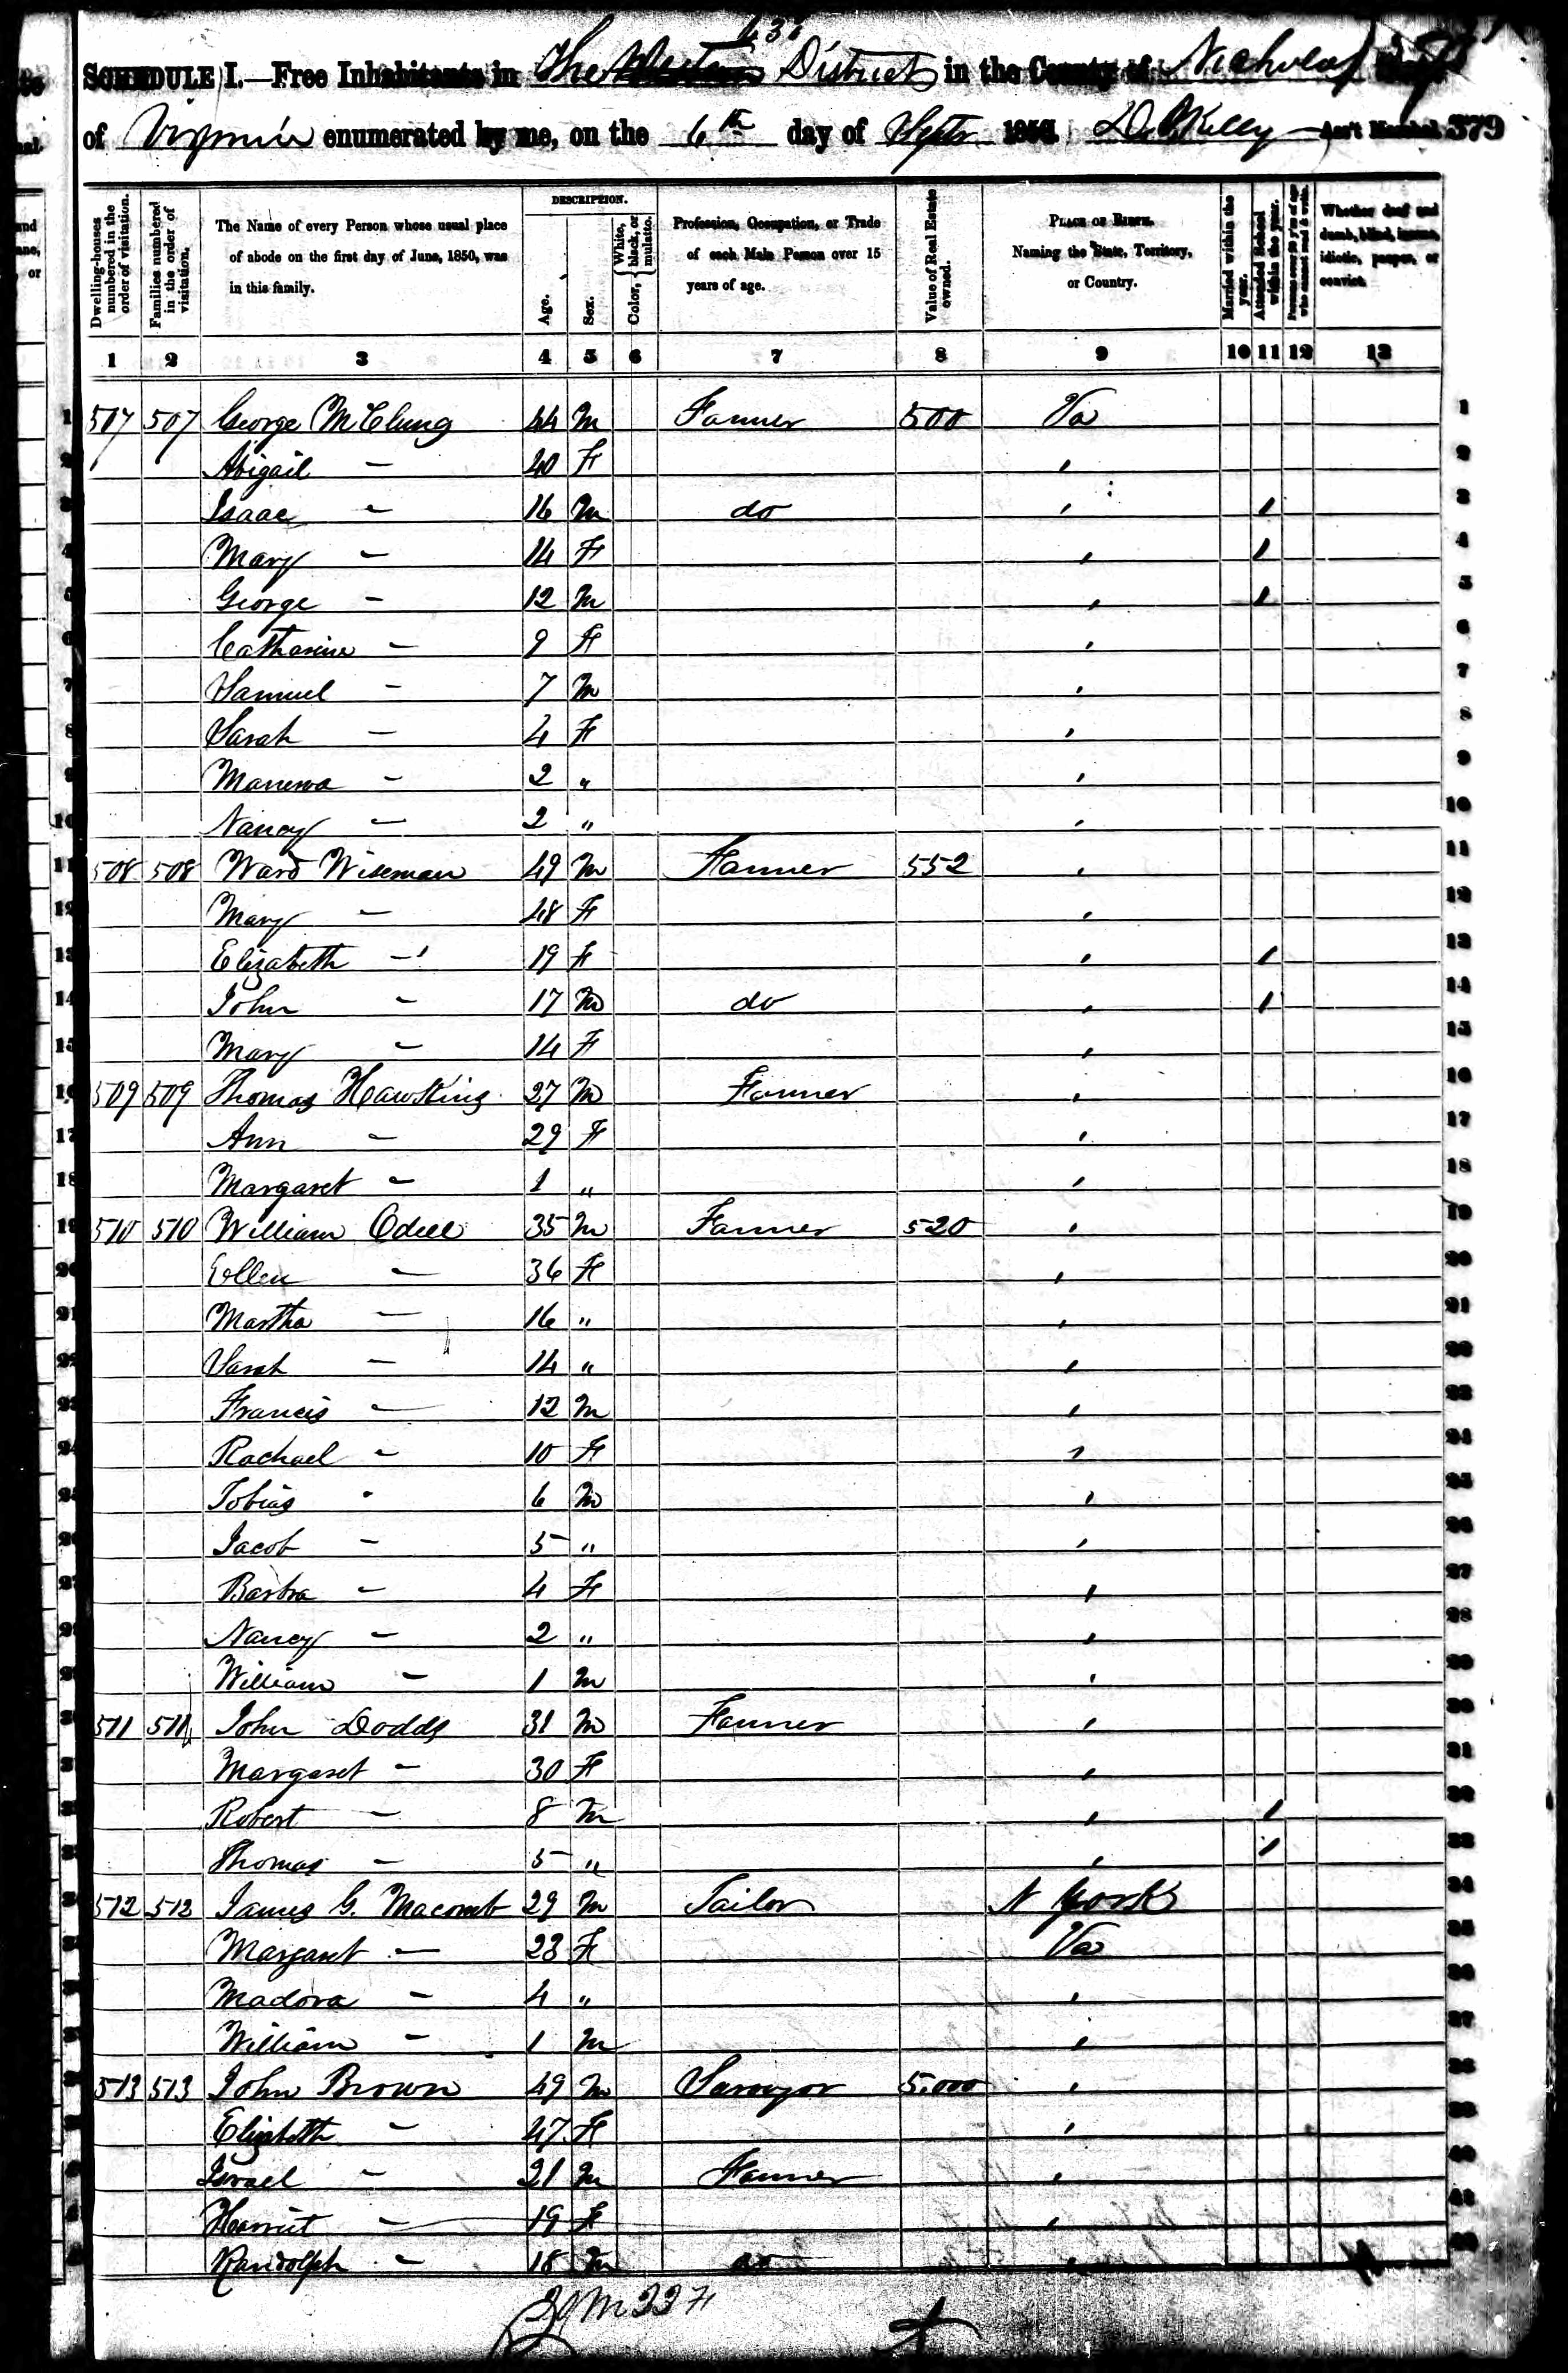 636
SCHEDULE I.—Free Inhabitants in The Western District in the County of Nicholas
of Virginia enumerated by me, on the 6th day of Septr 1850. Kelly Ass't Marshal 379
Dwelling-houses numbered in the order of visitation.
Families numbered in the order of visitation.
The Name of every Person whose usual place of abode on the first day of June, 1850, was in this family.
DESCRIPTION.
Age.
Sex.
Color, { White, black, or mulatto.
Profession, Occupation, or Trade of each Male Person over 15 years of age.
Value of Real Estate owned.
PLACE OF BIRTH. Naming the State, Territory, or Country.
Married within the year.
Attended School within the year.
Persons over 20 y'rs of age who cannot read and write.
Whether deaf and dumb, blind, insane, idiotic, pauper, or convict.
1 2 3 4 5 6 7 8 9 10 11 12 13
1 507 507 George McClung 44 M Farmer 500 Va 1
2 Abigail — 40 F " 2
3 Isaac — 16 M do " 1 3
4 Mary — 14 F " 1 4
5 George — 12 M " 1 5
6 Catharine — 9 F " 6
7 Samuel — 7 M " 7
8 Sarah — 4 F " 8
9 — 2 " " 9
10 Nancy — 2 " " 10
11 508 508 Ward Wiseman 49 M Farmer 552 " 11
12 Mary — 48 F " 12
13 Elizabeth — 19 F " 1 13
14 John — 17 M do " 1 14
15 Mary — 14 F " 15
16 509 509 Thomas Hawkins 27 M Farmer " 16
17 Ann — 29 F " 17
18 Margaret — 1 " " 18
19 510 510 William Odell 35 M Farmer 520 " 19
20 Ellen — 36 F " 20
21 Martha — 16 " " 21
22 Sarah — 14 " " 22
23 Francis — 12 M " 23
24 Rachael — 10 F " 24
25 Tobias — 6 M " 25
26 Jacob — 5 " " 26
27 Barbra — 4 F " 27
28 Nancy — 2 " " 28
29 William — 1 M " 29
30 511 511 John Dodds 31 M Farmer " 30
31 Margaret — 30 F " 31
32 Robert — 8 M " 1 32
33 Thomas — 5 " " 1 33
34 512 512 James G. Macomb 29 M Tailor N York 34
35 Margaret — 23 F Va 35
36 Madora — 4 " " 36
37 William — 1 M " 37
38 513 513 John Brown 49 M Surveyor 5.000 " 38
39 Elizabeth — 47 F " 39
40 Israel — 21 M Farmer " 40
41 Harriet — 19 F " 41
42 Randolph — 18 M do " 42
20 M 22 F